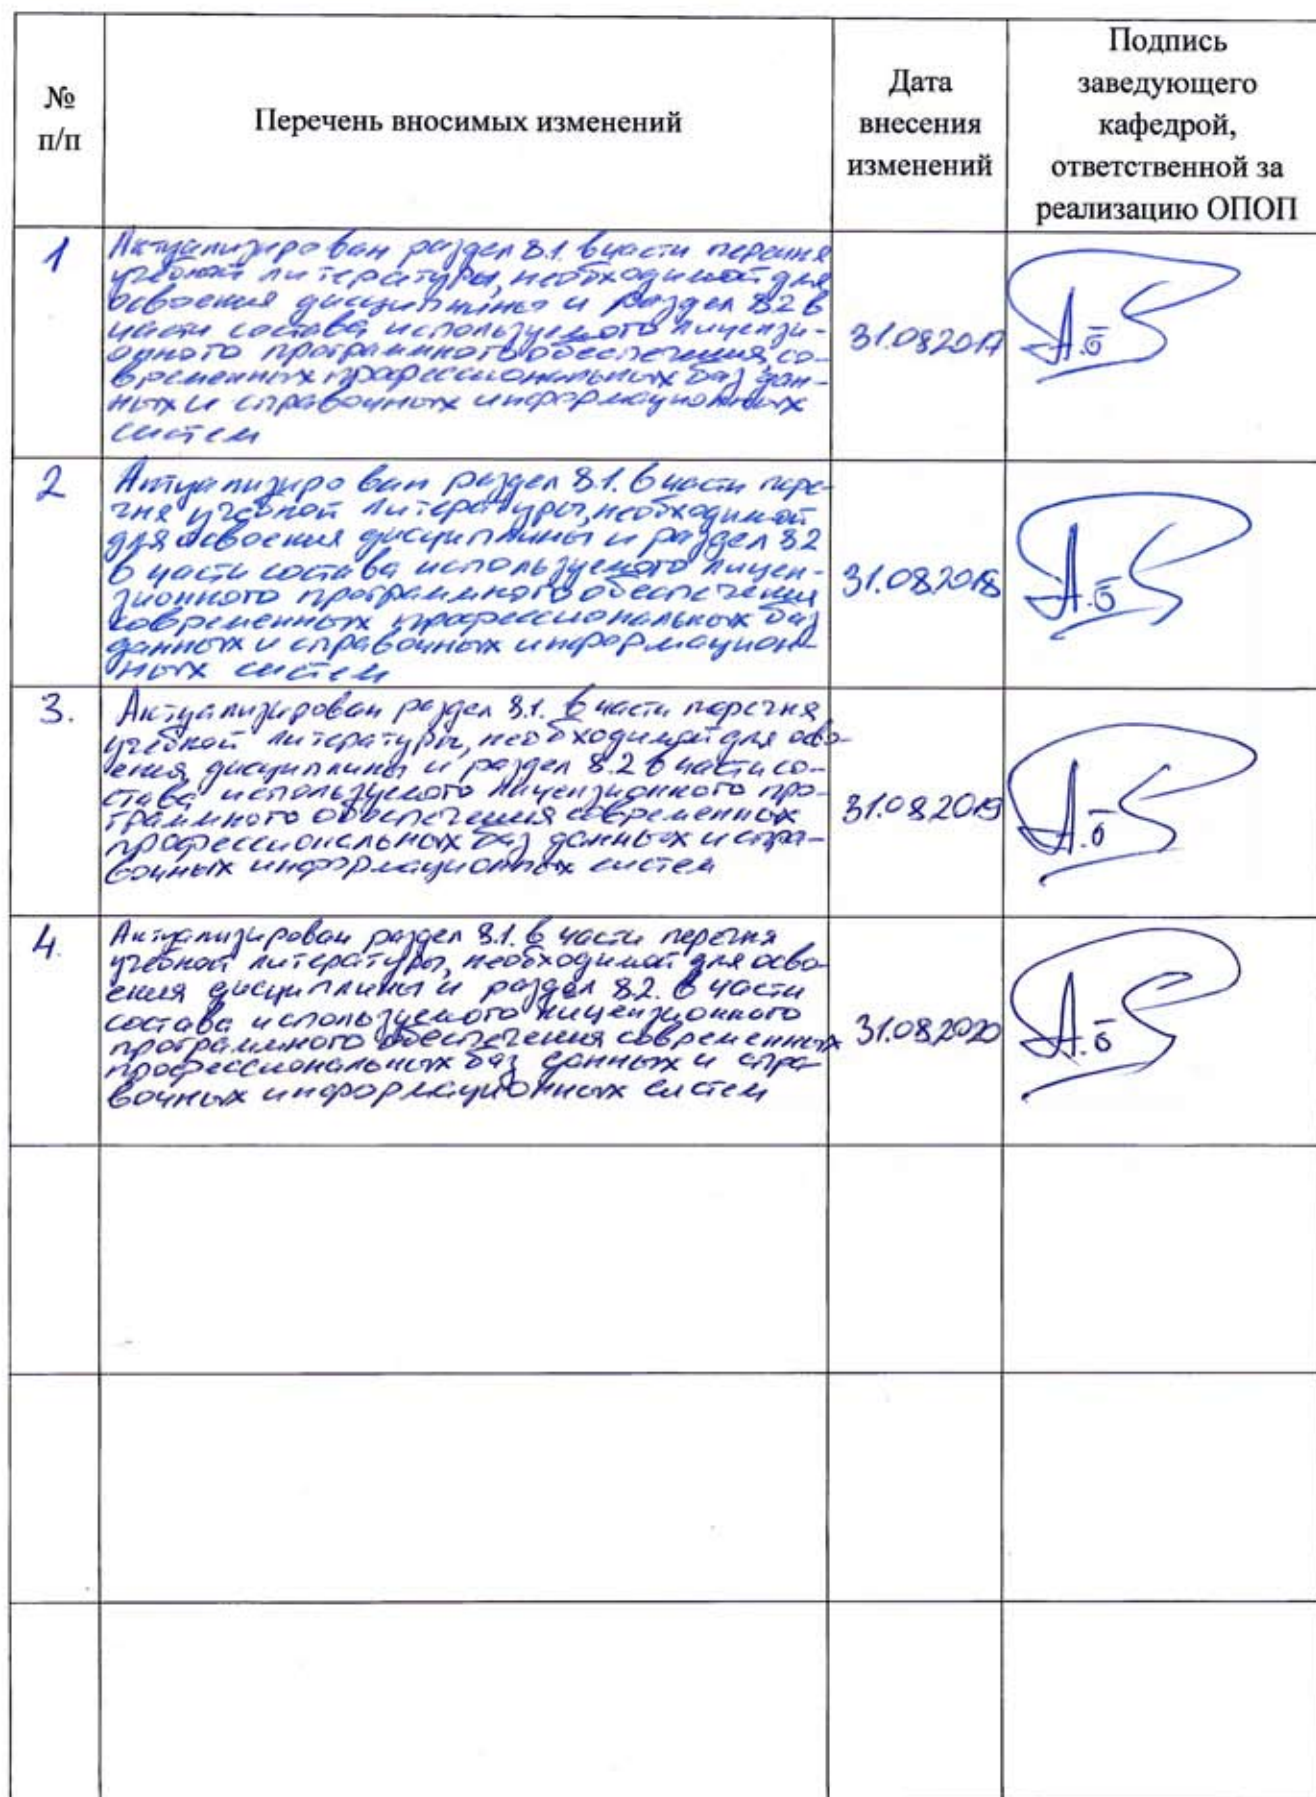 №
п/п
Перечень вносимых изменений
Дата
внесения
изменений
Подпись
заведующего
кафедрой,
ответственной за
реализацию ОПОП
1
Актуализирован раздел 8.1. в части перечня
учебной литературы, необходимой для
освоения дисциплины и раздел 8.2 в
части состава используемого лицензи-
онного программного обеспечения, со-
временных профессиональных баз дан-
ных и справочных информационных
систем
31.08.2017
2
Актуализирован раздел 8.1. в части переч-
ня учебной литературы, необходимой
для освоения дисциплины и раздел 8.2
в части состава используемого лицен-
зионного программного обеспечения
современных профессиональных баз
данных и справочных информацион-
ных систем
31.08.2018
3.
Актуализирован раздел 8.1. в части перечня
учебной литературы, необходимой для осво-
ения дисциплины и раздел 8.2 в части со-
става используемого лицензионного про-
граммного обеспечения современных
профессиональных баз данных и спра-
вочных информационных систем
31.08.2019
4.
Актуализирован раздел 8.1. в части перечня
учебной литературы, необходимой для осво-
ения дисциплины и раздел 8.2. в части
состава используемого лицензионного
программного обеспечения современных
профессиональных баз данных и спра-
вочных информационных систем
31.08.2020